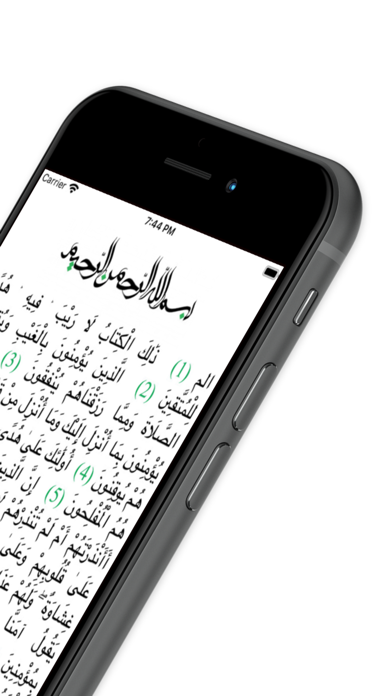 Carrier
7:44 PM
بسم الله الرحمن الرحيم
الم (1) ذَلِكَ الْكِتَابُ لَا رَيْبَ فِيهِ
لِّلْمُتَّقِينَ (2) الَّذِينَ يُؤْمِنُونَ بِالْغَيْبِ
الصَّلَاةَ وَمِمَّا رَزَقْنَاهُمْ يُنْفِقُونَ (3)
يُؤْمِنُونَ بِمَا أُنْزِلَ إِلَيْكَ وَمَا أُنْزِلَ مِنْ
هُمْ يُوقِنُونَ (4) أُولَئِكَ عَلَى هُدًى
هُمُ الْمُفْلِحُونَ (5) إِنَّ
أَأَنْذَرْتَهُمْ أَمْ لَمْ تُنْذِرْهُمْ
عَلَى قُلُوبِهِمْ وَعَلَى
غِشَاوَةٌ وَلَهُمْ
يَقُولُ آمَنَّا
بِمُؤْمِنِينَ